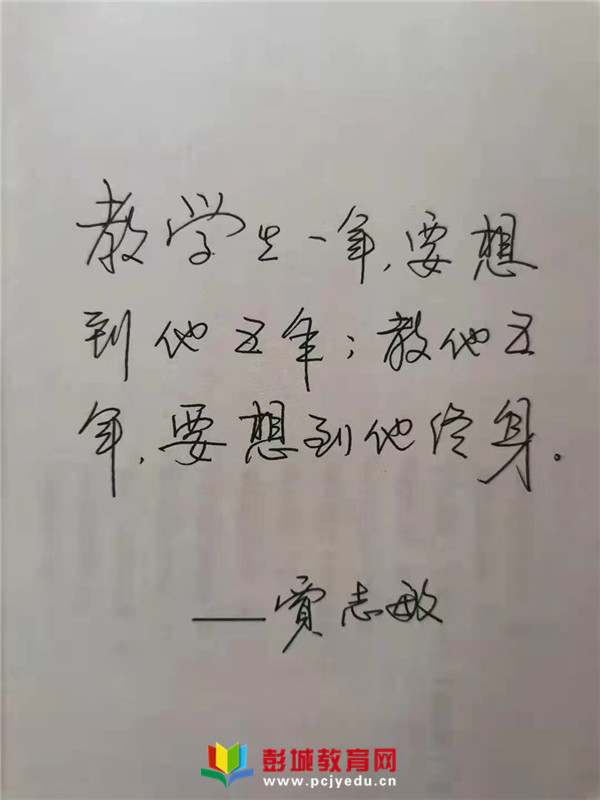 教学生一年，要想
到他五年；教他五
年，要想到他终身。
——贾志敏
彭城教育网
www.pcjyedu.cn